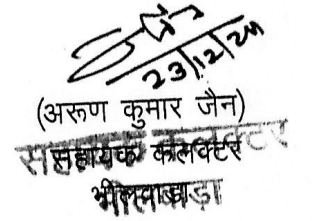 23/12/24
(अरूण कुमार जैन)
सहायक कलक्टर
भीलवाड़ा